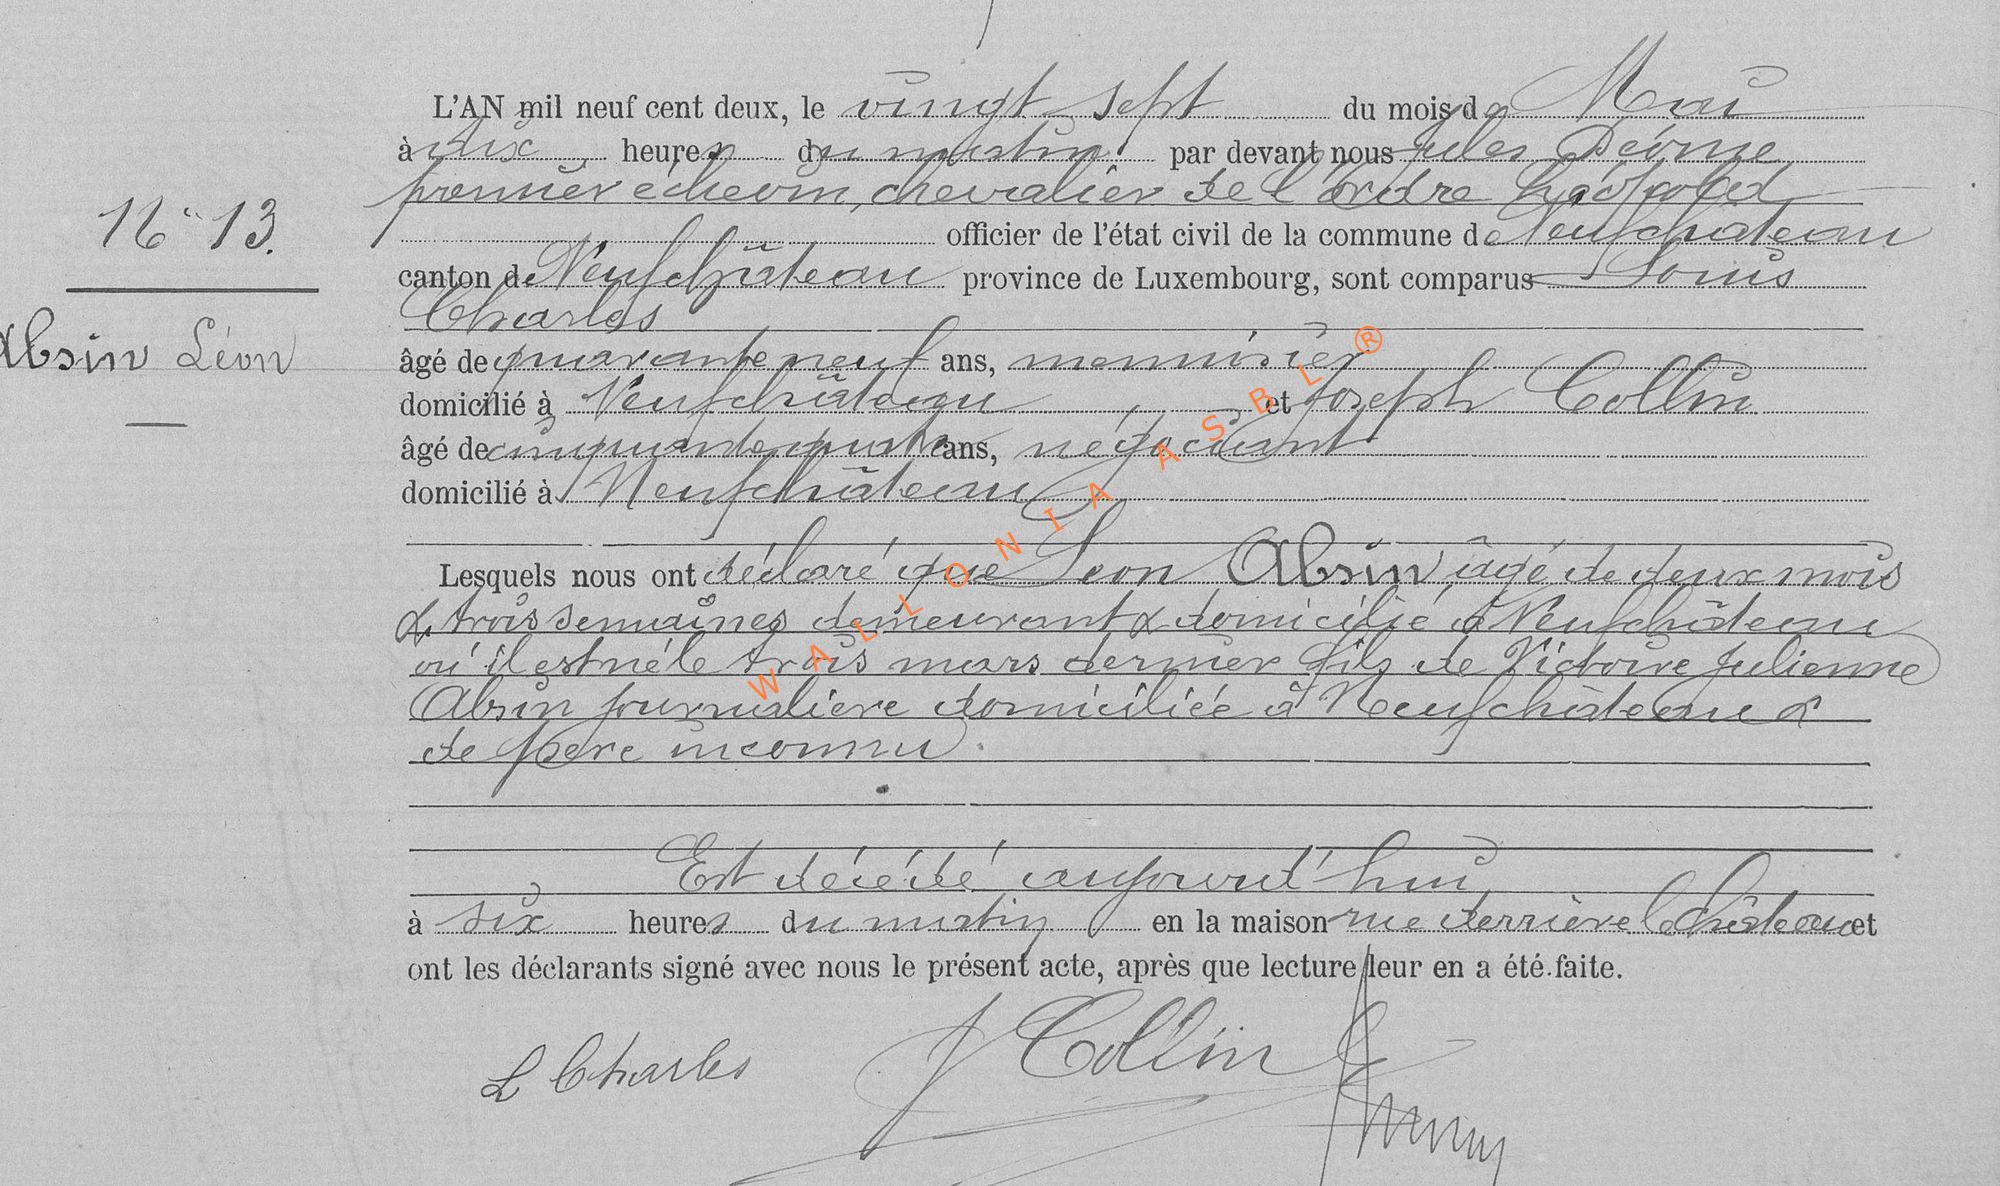 L'AN mil neuf cent deux, le vingt sept du mois de Mai
à dix heures du matin par devant nous Jules
premier échevin, chevalier de l'ordre Léopold
N° 13.
officier de l'état civil de la commune de Neufchâteau
canton de Neufchâteau province de Luxembourg, sont comparus Louis
Charles
Absin Léon
âgé de quarante neuf ans, menuisier
domicilié à Neufchâteau et Joseph Collin
âgé de cinquante quatre ans, négociant
domicilié à Neufchâteau
Lesquels nous ont déclaré que Léon Absin âgé de deux mois
& trois semaines demeurant & domicilié à Neufchâteau
où il est né le trois mars dernier fils de Victoire Julienne
Absin journalière domiciliée à Neufchâteau &
de père inconnu.
Est décédé aujourd'hui
à six heures du matin en la maison rue derrière le Château et
ont les déclarants signé avec nous le présent acte, après que lecture leur en a été faite.
L Charles J Collin
WALLONIA ASBL®